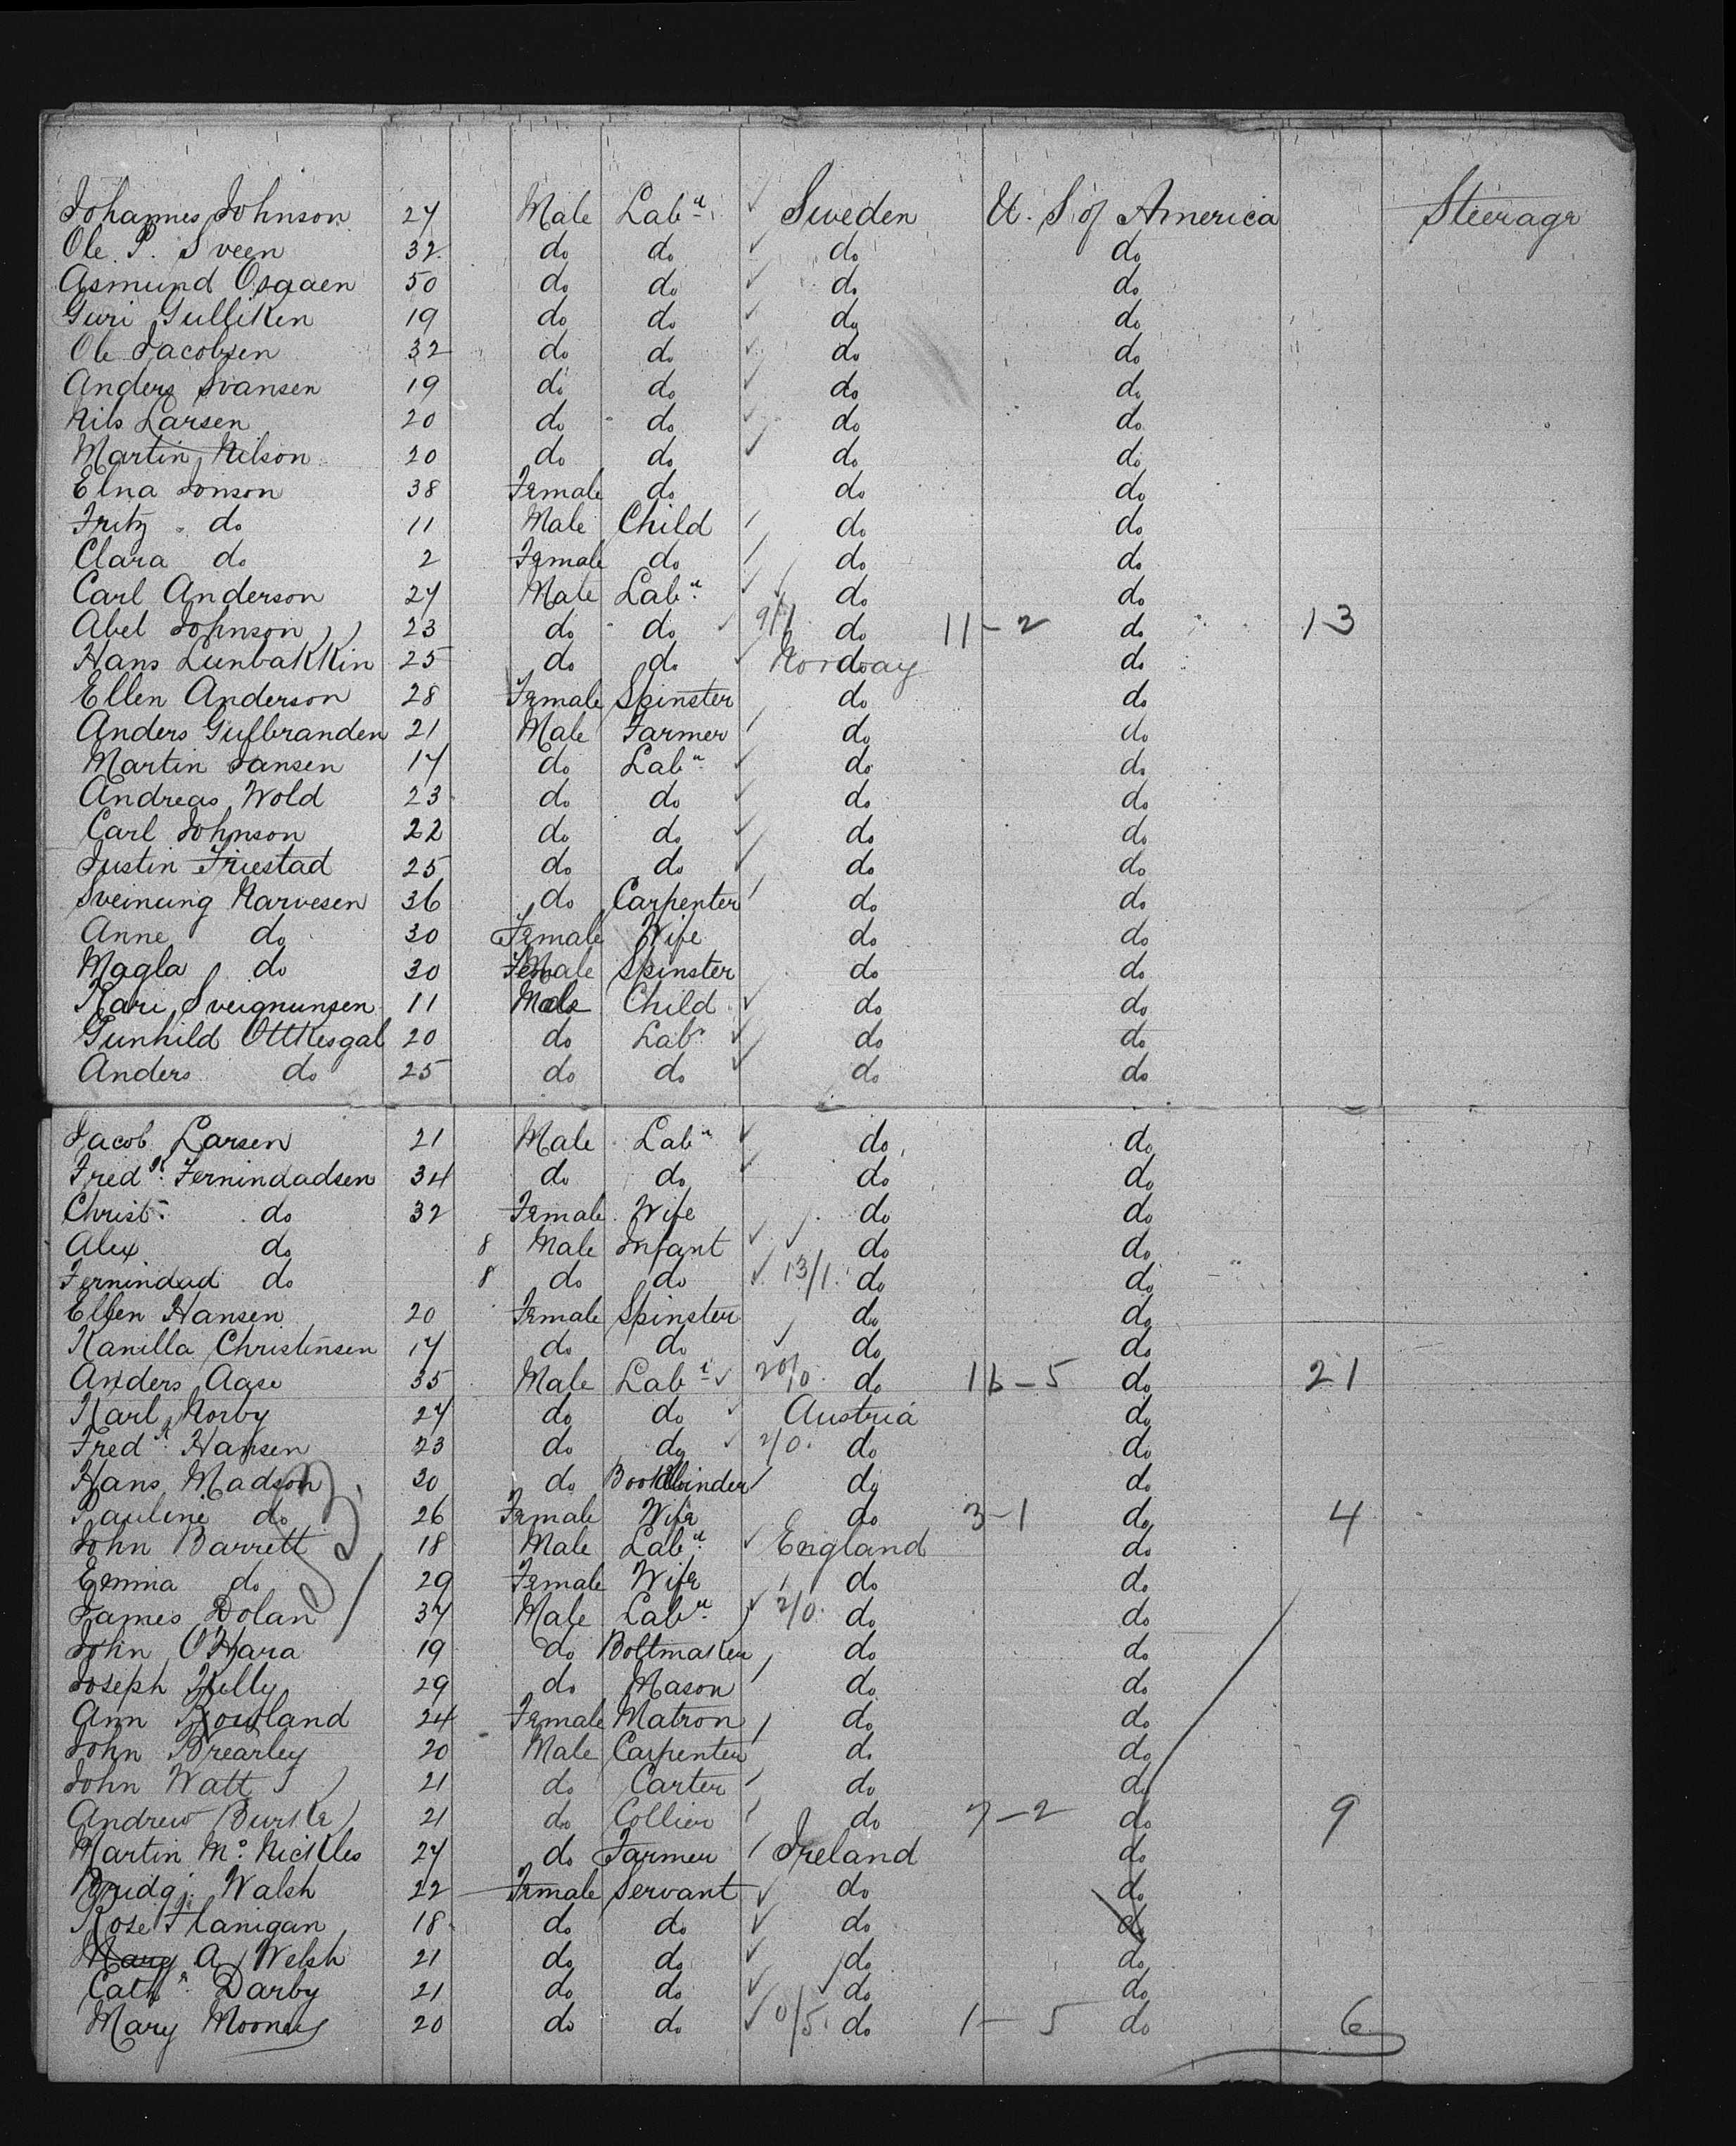 Johannes Johnson 24 Male Labr. Sweden U. S. of America Steerage
Ole. P. Sveen 32 do do do do
Asmund Osgaen 50 do do do do
Guri Gulliken 19 do do do do
Ole Jacobsen 32 do do do do
Anders Svansen 19 do do do do
Nils Larsen 20 do do do do
Martin Nilson 20 do do do do
Elna Jonson 38 Female do do do
Fritz do 11 Male Child do do
Clara do 2 Female do do do
Carl Anderson 24 Male Labr. do do
Abel Johnson 23 do do 9/1 do 11-2 do 13
Hans Lunbakkin 25 do do Norway do
Ellen Anderson 28 Female Spinster do do
Anders Gulbranden 21 Male Farmer do do
Martin Jansen 17 do Labr. do do
Andreas Wold 23 do do do do
Carl Johnson 22 do do do do
Justin Friestad 25 do do do do
Sveinung Narvesen 36 do Carpenter do do
Anne do 30 Female Wife do do
Magla do 30 Female Spinster do do
Kari Sveignunsen 11 Child do do
Gunhild Ottkesgal 20 do Labr do do
Anders do 25 do do do do
Jacob Larsen 21 Male Labr do do
Fredk. Fernindadsen 34 do do do do
Christ. do 32 Female Wife do do
Alex do 8 Male Infant do do
Fernindad do 8 do do 13/1 do do
Ellen Hansen 20 Female Spinster do do
Kanilla Christensen 17 do do do do
Anders Aase 35 Male Labr 20/0 do 16-5 do 21
Karl Norby 24 do do Austria do
Fredk. Hansen 23 do do 2/0 do do
Hans Madson 30 do Bookbinder do do
Pauline do 26 Female Wife do 3-1 do 4
John Barrett 18 Male Labr. England do
Emma do 29 Female Wife do do
James Dolan 37 Male Labr. 2/0 do do
John O'Hara 19 do Boltmaker do do
Joseph Kelly 29 do Mason do do
Ann Rowland 24 Female Matron do do
John Brearley 20 Male Carpenter do do
John Watt 21 do Carter do do
Andrew Burke 21 do Collier do 7-2 do 9
Martin Mc. Nickles 24 do Farmer Ireland do
Bridgt. Walsh 22 Female Servant do do
Rose Flanigan 18 do do do do
Mary A. Welsh 21 do do do do
Cathn. Darby 21 do do do do
Mary Mooney 20 do do 0/5 do 1-5 do 6